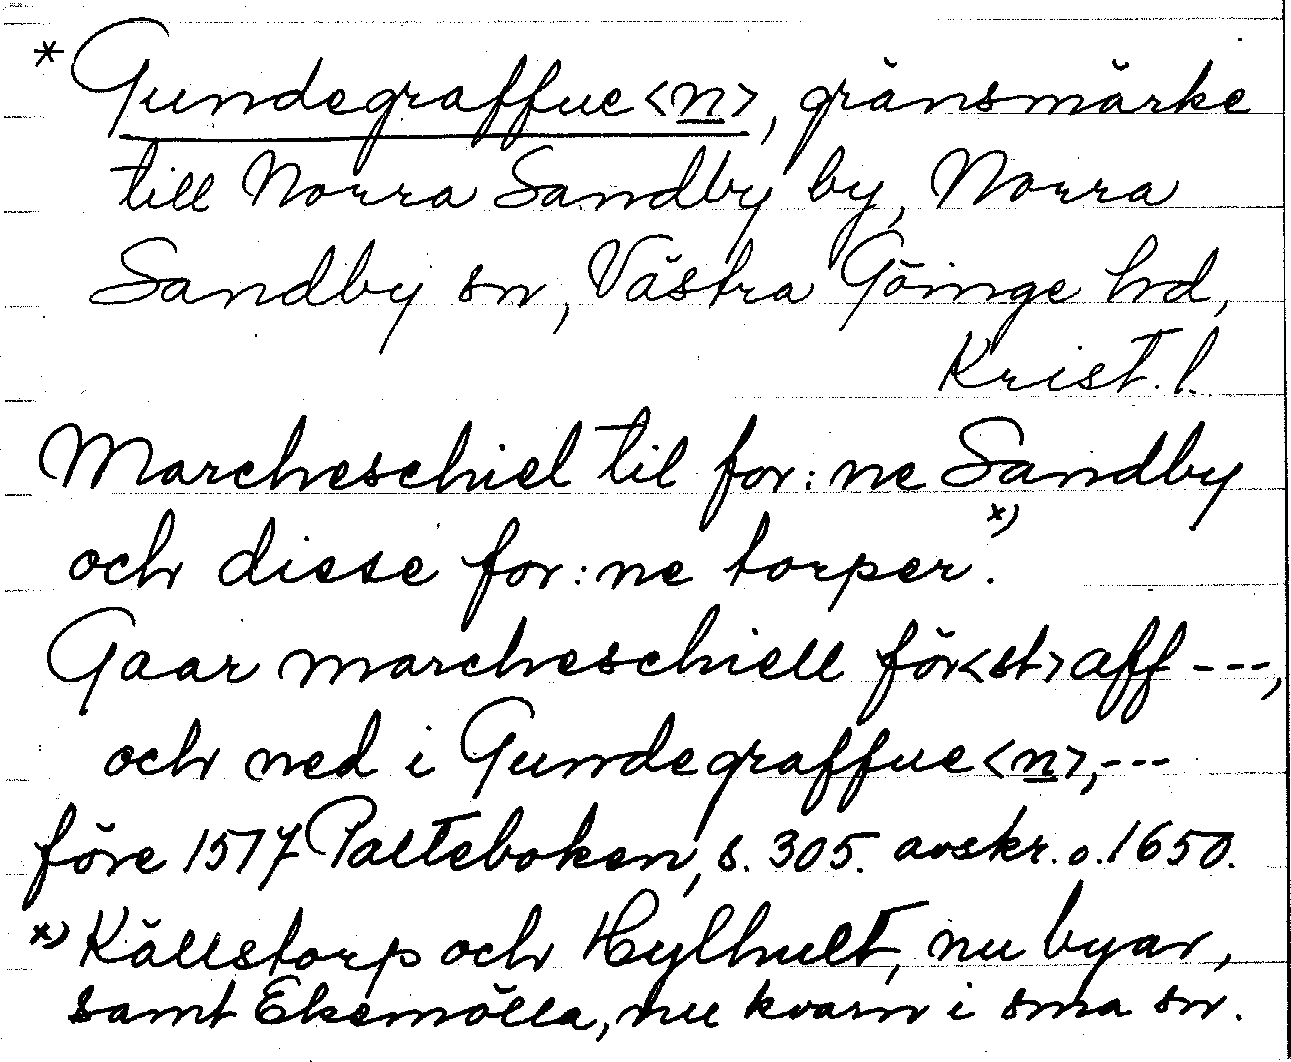 * Gundegraffue<n>, gränsmärke
till Norra Sandby by, Norra
Sandby sn, Västra Göinge hd,
Krist. l.
Marcheschiel til for:ne Sandby
och disse for:ne torper.x)
Gaar marcheschiell för<st> aff ---,
och ned i Gundegraffue<n>,---
före 1517 Palteboken, s. 305. avskr. o. 1650.
x) Källstorp och Hylhult, nu byar,
samt Ekemölla, nu kvarn i sma sn.